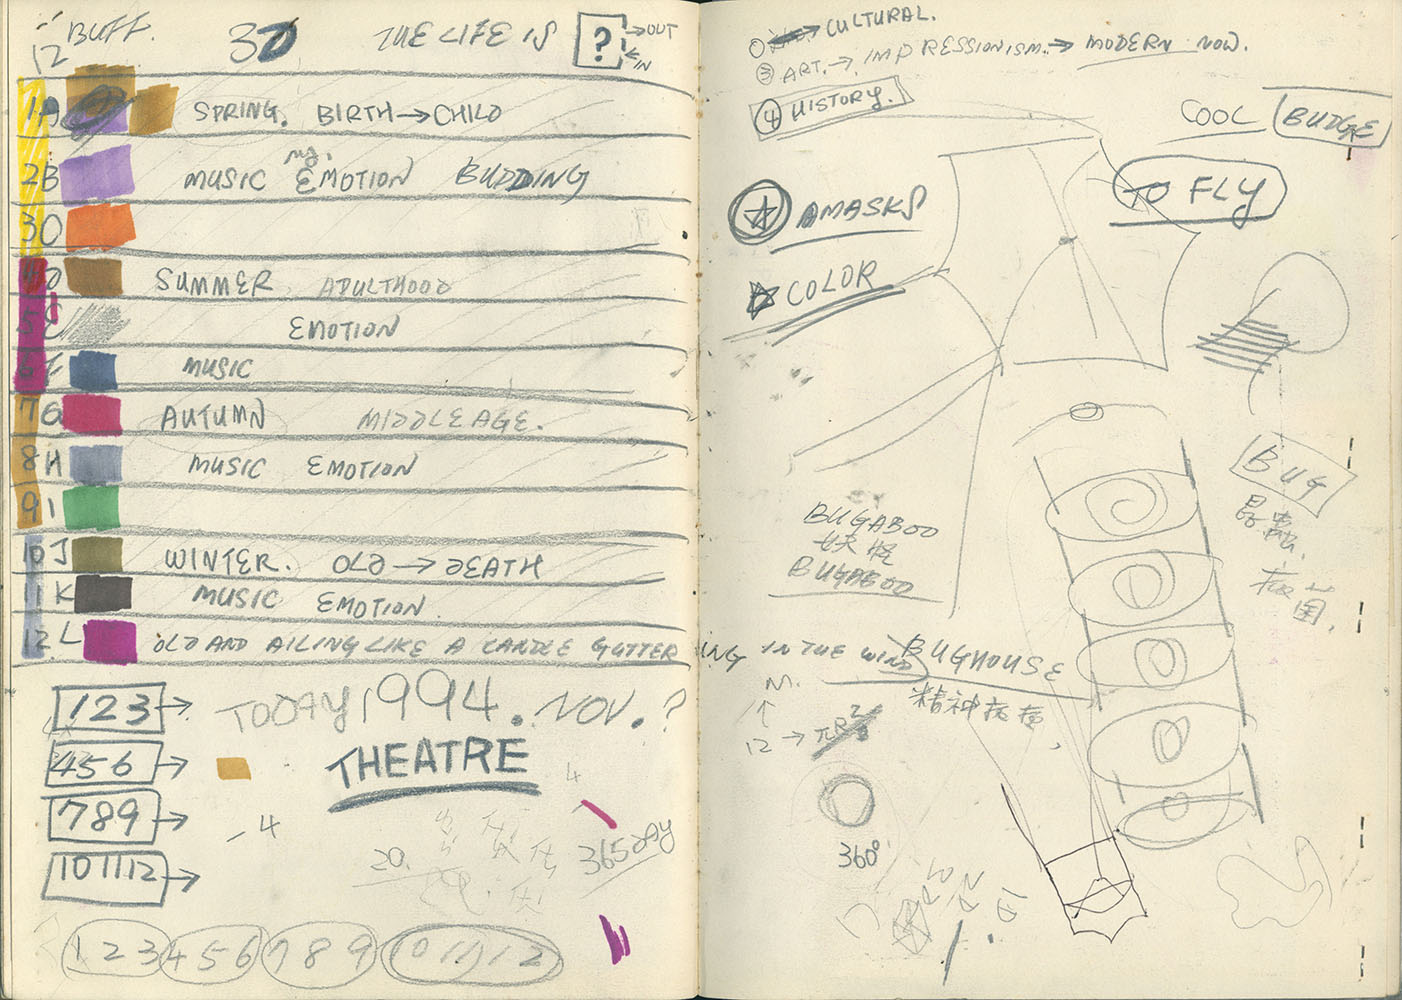 BUFF.
12
30
THE LIFE IS ? → OUT
← IN
1A SPRING. BIRTH → CHILD
2B MUSIC EMOTION BUDDING
30
SUMMER ADULTHOOD
5E EMOTION
MUSIC
7G AUTUMN MIDDLE AGE.
8H MUSIC EMOTION
9I
10J WINTER. OLD → DEATH
1K MUSIC EMOTION.
12.L OLD AND AILING LIKE A CANDLE GUTTERING IN THE WIND
123 →
TODAY 1994. NOV. ?
456 →
THEATRE
4
789 →
-4
20.
365 DAY
10 11 12 →
1 2 3 4 5 6 7 8 9 10 11 12
① → CULTURAL.
③ ART. → IMPRESSIONISM. → MODERN NOW.
④ HISTORY.
COOL BUDGE
TO FLY
AMASKS
COLOR
BUG
昆蟲.
病菌.
BUGABOO
妖怪
BUGABOO
BUGHOUSE
精神病院
M.
↑
12 → πR²
360°